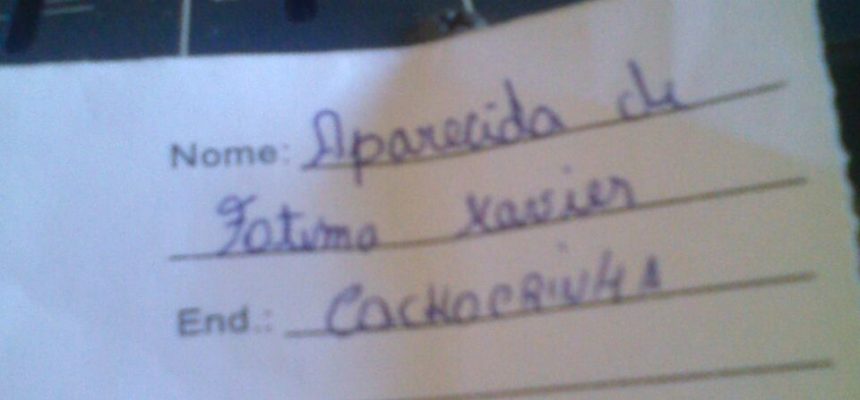 Nome: Aparecida de
Fatima Xavier
End.: Cachoerinha